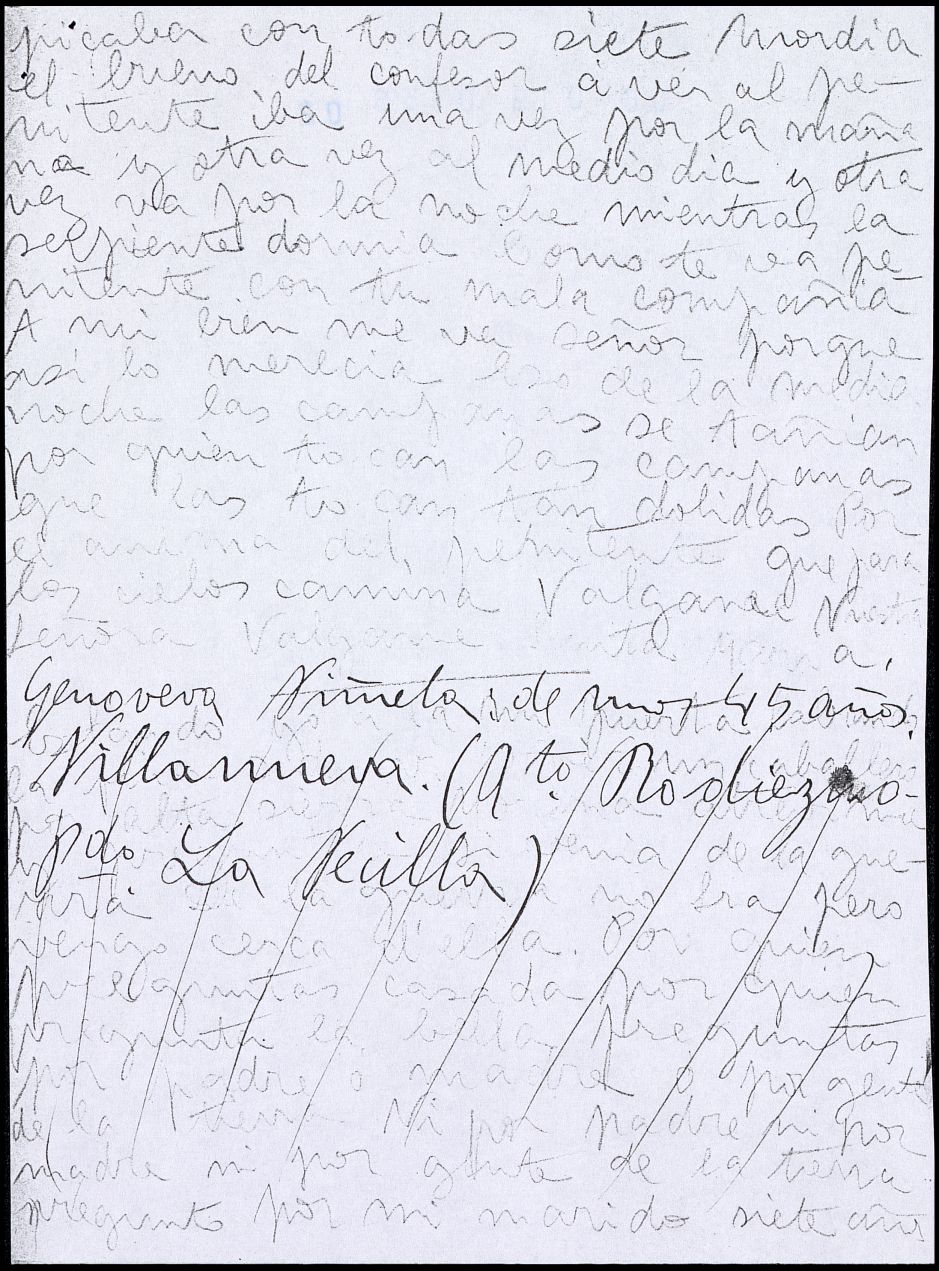 picaba con todas siete mordia
el bueno del confesor á ver al pe-
nitente iba una vez por la maña
na y otra vez al mediodia y otra
vez va por la noche mientras la
serpiente dormia Como te va pe-
nitente con tu mala compañia
A mi bien me va señor porque
asi lo merecia Eso de la media
noche las campanas se tañian
por quien tocan las campanas
que las tocan tan dolidas Por
el anima del penitente que para
los cielos camina Valgame Nuestra
Señora Valgame Santa Maria,
Genoveva Viñuela: de unos 45 años.
Villanueva. (Ayto. Rodiezmo-
pdo. La Vecilla)
no era pero
vengo cerca d'ella. Por quien
preguntas casada por quien
pregunta la bella preguntas
por padre o madre o por gente
de la tierra Ni por padre ni por
madre ni por gente de la tierra
pregunto por mi marido siete años